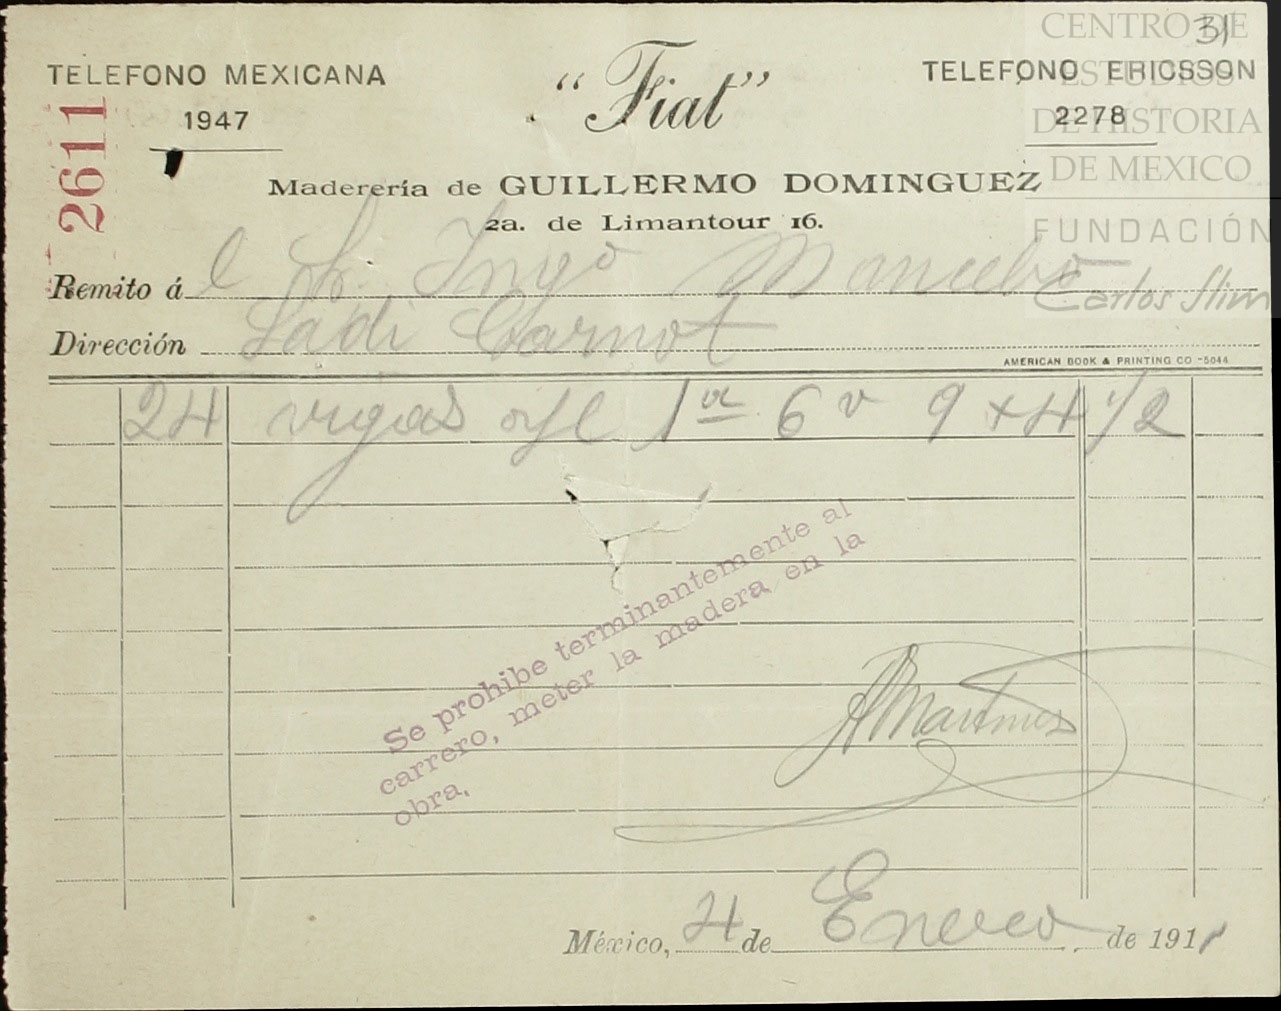 31
CENTRO DE
ESTUDIOS
DE HISTORIA
DE MEXICO
FUNDACIÓN
Carlos Slim
TELEFONO MEXICANA
1947
"Fiat"
TELEFONO ERICSSON
2278
2611
Maderería de GUILLERMO DOMINGUEZ
2a. de Limantour 16.
Remito á l Sr. Ingo Mancebo
Dirección Sadi Carnot
AMERICAN BOOK & PRINTING CO -5044
24 vigas 1a 6 v 9 x 4 1/2
Se prohibe terminantemente al
carrero, meter la madera en la
obra.
AMartinez
México, 4 de Enero de 1911